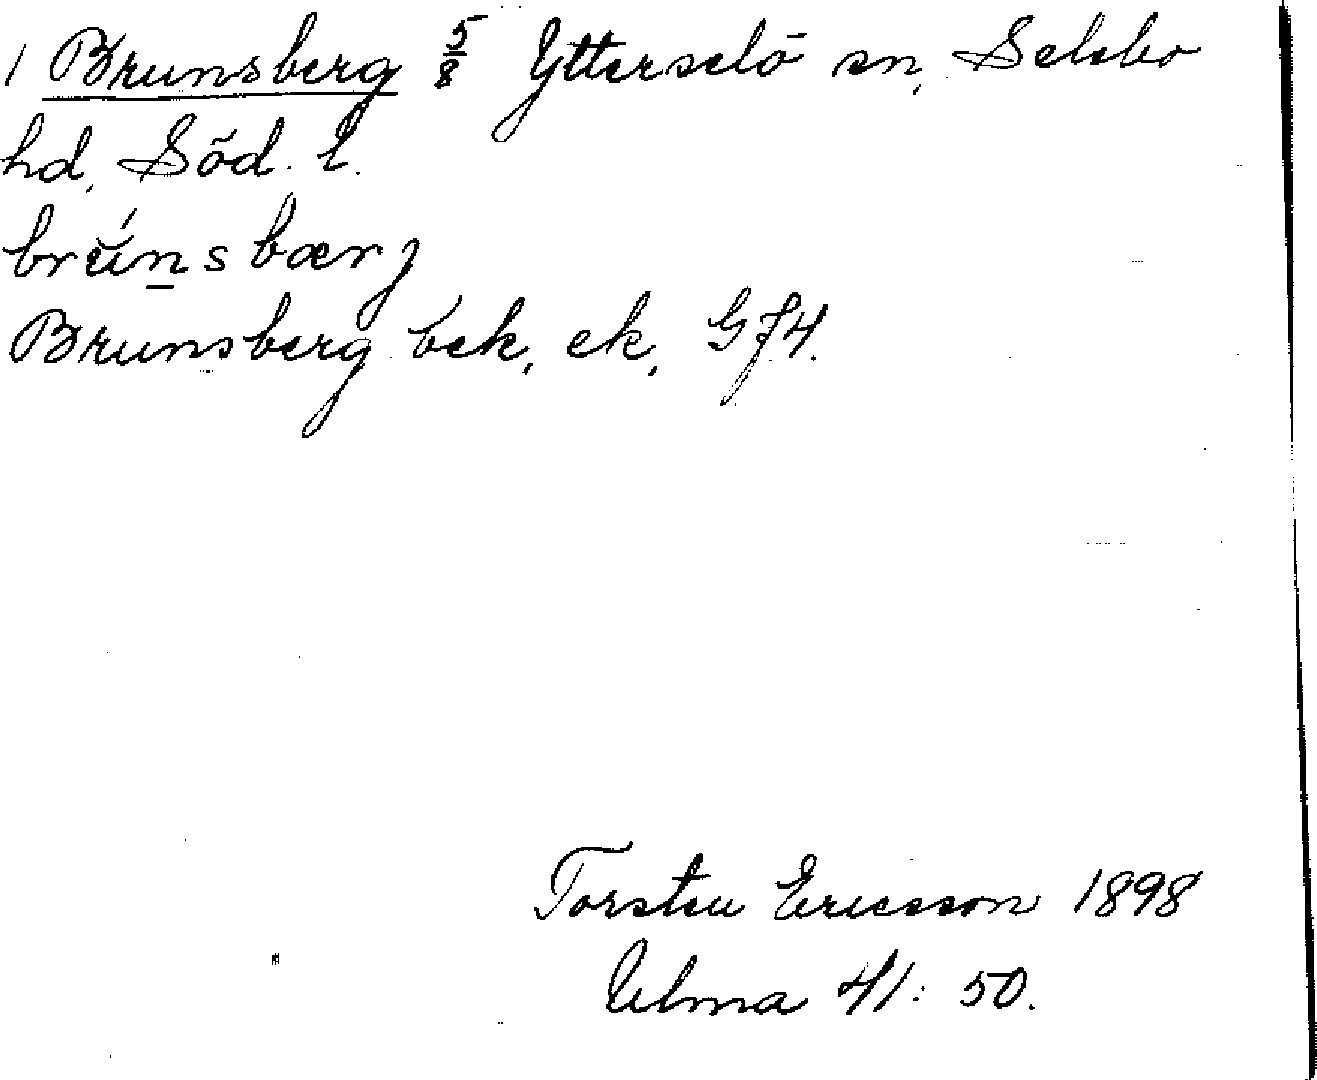 1 Brunsberg 5/8 Ytterselö sn, Selebo
hd, Söd. l.
brŭ́n̲sbærj
Brunsberg bek, ek, Gf4.
Torsten Ericsson 1898
Ulma 41: 50.